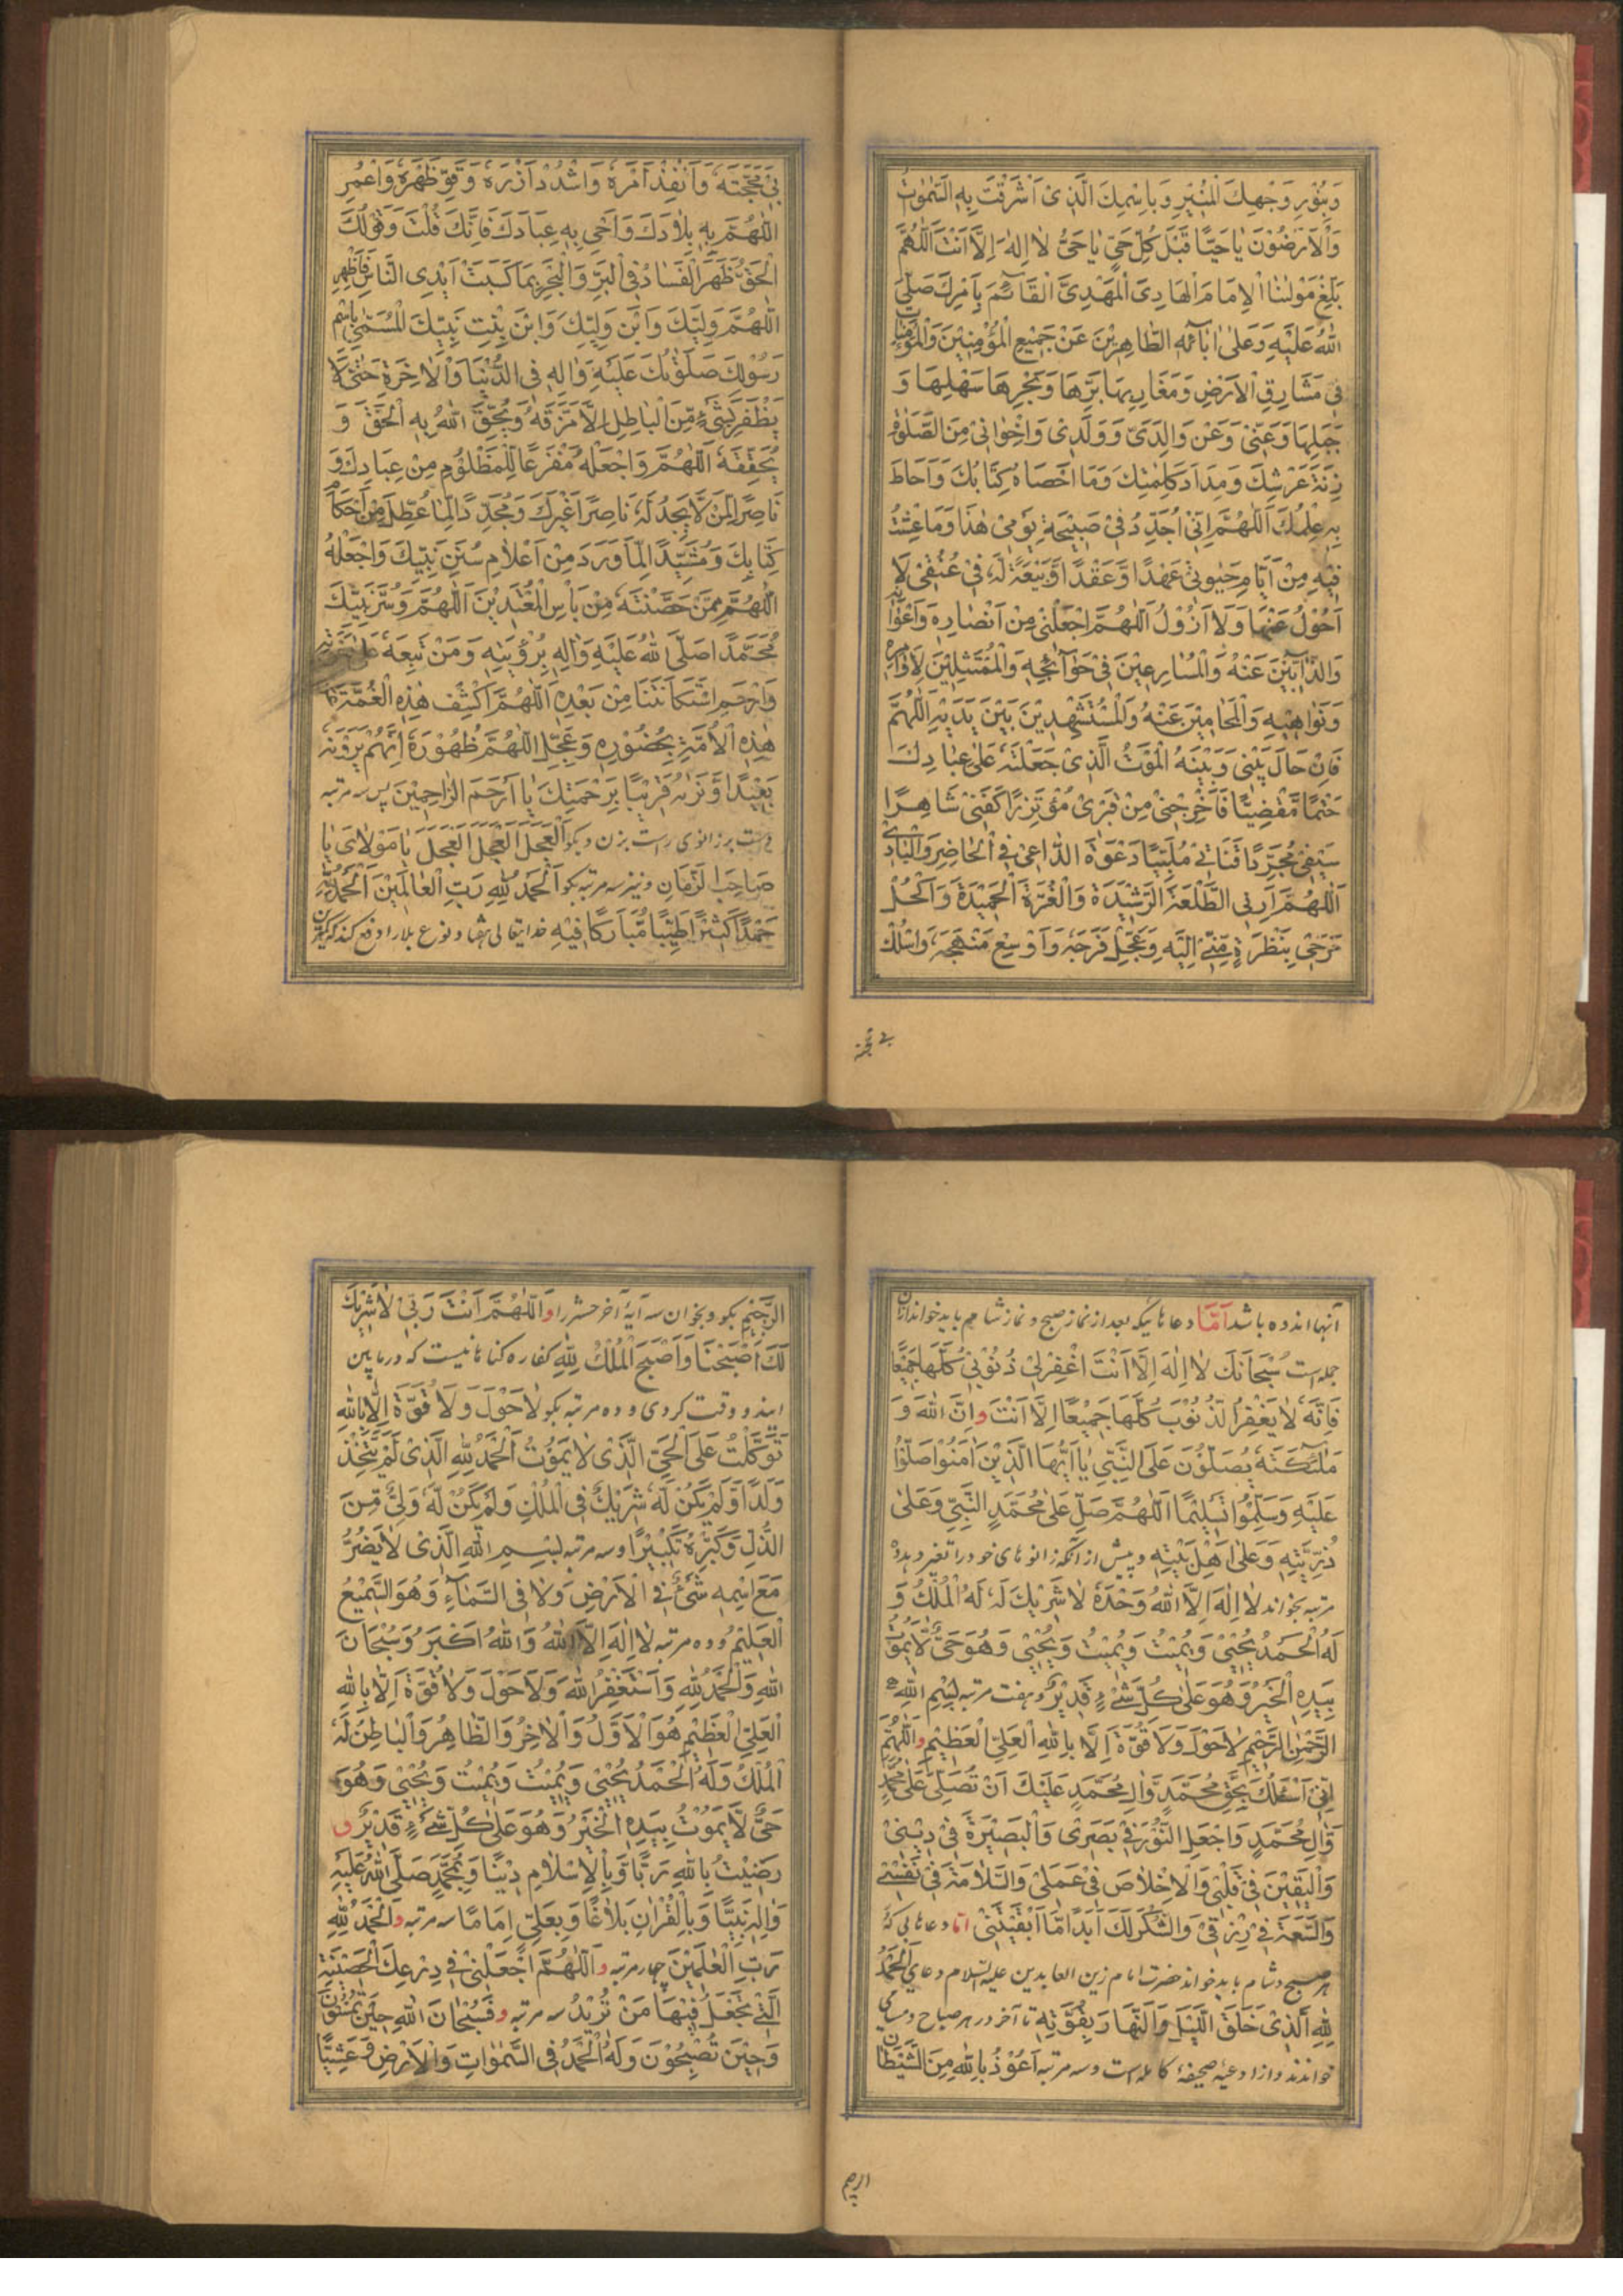 وَبِنُوْرِ وَجْهِكَ الْمُنِيْرِ وَبِاسْمِكَ الَّذِىْ اَشْرَقَتْ بِهِ السَّمٰوٰاتُ
وَالْاَرَضُوْنَ يٰا حَيًّا قَبْلَ كُلِّ حَىٍّ يٰا حَىُّ لٰا اِلٰهَ اِلَّا اَنْتَ اَللّٰهُمَّ
بَلِّغْ مَوْلٰنَا الْاِمٰامَ الْهٰادِىَ الْمَهْدِىَّ الْقٰائِمَ بِاَمْرِكَ صَلَّى
اللّٰهُ عَلَيْهِ وَعَلٰى اٰبٰائِهِ الطّٰاهِرِيْنَ عَنْ جَمِيْعِ الْمُؤْمِنِيْنَ وَالْمُؤْمِنٰاتِ
فِىْ مَشٰارِقِ الْاَرْضِ وَمَغٰارِبِهٰا بَرِّهٰا وَبَحْرِهٰا سَهْلِهٰا وَ
جَبَلِهٰا وَعَنِّىْ وَعَنْ وَالِدَىَّ وَوَلَدِىْ وَاِخْوٰانِىْ مِنَ الصَّلَوٰةِ
زِنَةَ عَرْشِكَ وَمِدٰادَ كَلِمٰتِكَ وَمٰا اَحْصٰاهُ كِتٰابُكَ وَاَحٰاطَ
بِهِ عِلْمُكَ اَللّٰهُمَّ اِنِّىْ اُجَدِّدُ فِىْ صَبِيْحَةِ يَوْمِىْ هٰذٰا وَمٰا عِشْتُ
فِيْهِ مِنْ اَيّٰامِ حَيٰوتِىْ عَهْدًا وَّعَقْدًا وَّبَيْعَةً لَهُ فِىْ عُنُقِىْ لٰا
اَحُوْلُ عَنْهٰا وَلٰا اَزُوْلُ اَللّٰهُمَّ اجْعَلْنِىْ مِنْ اَنْصٰارِهِ وَاَعْوٰانِهِ
وَالذّٰابِّيْنَ عَنْهُ وَالْمُسٰارِعِيْنَ فِىْ حَوٰائِجِهِ وَالْمُمْتَثِلِيْنَ لِاَوٰامِرِهِ
وَنَوٰاهِيْهِ وَالْمُحٰامِيْنَ عَنْهُ وَالْمُسْتَشْهَدِيْنَ بَيْنَ يَدَيْهِ اَللّٰهُمَّ
فَاِنْ حٰالَ بَيْنِىْ وَبَيْنَهُ الْمَوْتُ الَّذِىْ جَعَلْتَهُ عَلٰى عِبٰادِكَ
حَتْمًا مَّقْضِيًّا فَاَخْرِجْنِىْ مِنْ قَبْرِىْ مُؤْتَزِرًا كَفَنِىْ شٰاهِرًا
سَيْفِىْ مُجَرِّدًا قَنٰاتِىْ مُلَبِّيًا دَعْوَةَ الدّٰاعِىْ فِى الْحٰاضِرِ وَالْبٰادِىْ
اَللّٰهُمَّ اَرِنِى الطَّلْعَةَ الرَّشِيْدَةَ وَالْغُرَّةَ الْحَمِيْدَةَ وَاكْحُلْ
مَرَهِىْ بِنَظْرَةٍ مِّنِّىْ اِلَيْهِ وَعَجِّلْ فَرَجَهُ وَاَوْسِعْ مَنْهَجَهُ وَاسْلُكْ
بِىْ مَحَجَّتَهُ وَاَنْفِذْ اَمْرَهُ وَاشْدُدْ اَزْرَهُ وَقَوِّ ظَهْرَهُ وَاعْمُرِ
اللّٰهُمَّ بِهِ بِلٰادَكَ وَاَحْىِ بِهِ عِبٰادَكَ فَاِنَّكَ قُلْتَ وَقَوْلُكَ
الْحَقُّ ظَهَرَ الْفَسٰادُ فِى الْبَرِّ وَالْبَحْرِ بِمٰا كَسَبَتْ اَيْدِى النّٰاسِ فَاَظْهِرِ
اللّٰهُمَّ وَلِيَّكَ وَابْنَ وَلِيِّكَ وَابْنَ بِنْتِ نَبِيِّكَ الْمُسَمّٰى بِاسْمِ
رَسُوْلِكَ صَلَوٰتُكَ عَلَيْهِ وَاٰلِهِ فِى الدُّنْيٰا وَالْاٰخِرَةِ حَتّٰى لٰا
يَظْفَرَ بِشَىْءٍ مِّنَ الْبٰاطِلِ اِلّٰا مَزَّقَهُ وَيُحِقَّ اللّٰهُ بِهِ الْحَقَّ وَ
يُحَقِّقَهُ اَللّٰهُمَّ وَاجْعَلْهُ مَفْزَعًا لِّلْمَظْلُوْمِ مِنْ عِبٰادِكَ وَ
نٰاصِرًا لِّمَنْ لّٰا يَجِدُ لَهُ نٰاصِرًا غَيْرَكَ وَمُجَدِّدًا لِّمٰا عُطِّلَ مِنْ اَحْكٰامِ
كِتٰابِكَ وَمُشَيِّدًا لِّمٰا وَرَدَ مِنْ اَعْلٰامِ سُنَنِ نَبِيِّكَ وَاجْعَلْهُ
اللّٰهُمَّ مِمَّنْ حَصَّنْتَهُ مِنْ بَأْسِ الْمُعْتَدِيْنَ اَللّٰهُمَّ وَسُرَّ نَبِيَّكَ
مُحَمَّدًا صَلَّى اللّٰهُ عَلَيْهِ وَاٰلِهِ بِرُؤْيَتِهِ وَمَنْ تَبِعَهُ عَلٰى دَعْوَتِهِ
وَارْحَمِ اسْتِكٰانَتَنٰا مِنْ بَعْدِهِ اَللّٰهُمَّ اكْشِفْ هٰذِهِ الْغُمَّةَ عَنْ
هٰذِهِ الْاُمَّةِ بِحُضُوْرِهِ وَعَجِّلِ اللّٰهُمَّ ظُهُوْرَهُ اِنَّهُمْ يَرَوْنَهُ
بَعِيْدًا وَّنَرٰىهُ قَرِيْبًا بِرَحْمَتِكَ يٰا اَرْحَمَ الرّٰاحِمِيْنَ پس سه مرتبه
دست بر زانوی راست بزن و بگو اَلْعَجَلَ الْعَجَلَ الْعَجَلَ يٰا مَوْلٰاىَ يٰا
صٰاحِبَ الزَّمٰانِ و نیز سه مرتبه بگو اَلْحَمْدُ لِلّٰهِ رَبِّ الْعٰالَمِيْنَ اَلْحَمْدُ لِلّٰهِ
حَمْدًا كَثِيْرًا طَيِّبًا مُّبٰارَكًا فِيْهِ خدایتعالی هفتاد نوع بلا را دفع کند که کمترین
بی محجته
آنها اندوه باشد اَمّٰا دعاهائیکه بعد از نماز صبح و نماز شام هم باید خواند ازان
جمله است سُبْحٰانَكَ لٰا اِلٰهَ اِلّٰا اَنْتَ اغْفِرْ لِىْ ذُنُوْبِىْ كُلَّهٰا جَمِيْعًا
فَاِنَّهُ لٰا يَغْفِرُ الذُّنُوْبَ كُلَّهٰا جَمِيْعًا اِلّٰا اَنْتَ و اِنَّ اللّٰهَ وَ
مَلٰئِكَتَهُ يُصَلُّوْنَ عَلَى النَّبِىِّ يٰا اَيُّهَا الَّذِيْنَ اٰمَنُوْا صَلُّوْا
عَلَيْهِ وَسَلِّمُوْا تَسْلِيْمًا اَللّٰهُمَّ صَلِّ عَلٰى مُحَمَّدٍ النَّبِىِّ وَعَلٰى
ذُرِّيَّتِهِ وَعَلٰى اَهْلِ بَيْتِهِ و پیش از آنکه زانوهای خود را تغیر دهد ده
مرتبه بخواند لٰا اِلٰهَ اِلَّا اللّٰهُ وَحْدَهُ لٰا شَرِيْكَ لَهُ لَهُ الْمُلْكُ وَ
لَهُ الْحَمْدُ يُحْيِىْ وَيُمِيْتُ وَيُمِيْتُ وَيُحْيِىْ وَهُوَ حَىٌّ لّٰا يَمُوْتُ
بِيَدِهِ الْخَيْرُ وَهُوَ عَلٰى كُلِّ شَىْءٍ قَدِيْرٌ و هفت مرتبه بِسْمِ اللّٰهِ
الرَّحْمٰنِ الرَّحِيْمِ لٰا حَوْلَ وَلٰا قُوَّةَ اِلَّا بِاللّٰهِ الْعَلِىِّ الْعَظِيْمِ و اَللّٰهُمَّ
اِنِّىْ اَسْئَلُكَ بِحَقِّ مُحَمَّدٍ وَّاٰلِ مُحَمَّدٍ عَلَيْكَ اَنْ تُصَلِّىَ عَلٰى مُحَمَّدٍ
وَّاٰلِ مُحَمَّدٍ وَاجْعَلِ النُّوْرَ فِىْ بَصَرِىْ وَالْبَصِيْرَةَ فِىْ دِيْنِىْ
وَالْيَقِيْنَ فِىْ قَلْبِىْ وَالْاِخْلٰاصَ فِىْ عَمَلِىْ وَالسَّلٰامَةَ فِىْ نَفْسِىْ
وَالسَّعَةَ فِىْ رِزْقِىْ وَالشُّكْرَ لَكَ اَبَدًا مّٰا اَبْقَيْتَنِىْ امّا دعاهائی که
هر صبح و شام باید خواند حضرت امام زین العابدین علیه السلام دعای اَلْحَمْدُ
لِلّٰهِ الَّذِىْ خَلَقَ اللَّيْلَ وَالنَّهٰارَ بِقُوَّتِهِ تا آخر در هر صباح و مسا می
خواندند و از ادعیهٔ صحیفهٔ کامله است و سه مرتبه اَعُوْذُ بِاللّٰهِ مِنَ الشَّيْطٰانِ
الرَّجِيْمِ بگو و بخوان سه آیهٔ آخر حشر را و اَللّٰهُمَّ اَنْتَ رَبِّىْ لٰا شَرِيْكَ
لَكَ اَصْبَحْنٰا وَاَصْبَحَ الْمُلْكُ لِلّٰهِ کفاره گناهانیست که در مابین
ایندو وقت کردی و ده مرتبه بگو لٰا حَوْلَ وَلٰا قُوَّةَ اِلّٰا بِاللّٰهِ
تَوَكَّلْتُ عَلَى الْحَىِّ الَّذِىْ لٰا يَمُوْتُ اَلْحَمْدُ لِلّٰهِ الَّذِىْ لَمْ يَتَّخِذْ
وَلَدًا وَّلَمْ يَكُنْ لَّهُ شَرِيْكٌ فِى الْمُلْكِ وَلَمْ يَكُنْ لَّهُ وَلِىٌّ مِّنَ
الذُّلِّ وَكَبِّرْهُ تَكْبِيْرًا و سه مرتبه بِسْمِ اللّٰهِ الَّذِىْ لٰا يَضُرُّ
مَعَ اسْمِهِ شَىْءٌ فِى الْاَرْضِ وَلٰا فِى السَّمٰاءِ وَهُوَ السَّمِيْعُ
الْعَلِيْمُ و ده مرتبه لٰا اِلٰهَ اِلَّا اللّٰهُ وَاللّٰهُ اَكْبَرُ وَسُبْحٰانَ
اللّٰهِ وَالْحَمْدُ لِلّٰهِ وَاَسْتَغْفِرُ اللّٰهَ وَلٰا حَوْلَ وَلٰا قُوَّةَ اِلّٰا بِاللّٰهِ
الْعَلِىِّ الْعَظِيْمِ هُوَ الْاَوَّلُ وَالْاٰخِرُ وَالظّٰاهِرُ وَالْبٰاطِنُ لَهُ
الْمُلْكُ وَلَهُ الْحَمْدُ يُحْيِىْ وَيُمِيْتُ وَيُمِيْتُ وَيُحْيِىْ وَهُوَ
حَىٌّ لّٰا يَمُوْتُ بِيَدِهِ الْخَيْرُ وَهُوَ عَلٰى كُلِّ شَىْءٍ قَدِيْرٌ و
رَضِيْتُ بِاللّٰهِ رَبًّا وَّبِالْاِسْلٰامِ دِيْنًا وَبِمُحَمَّدٍ صَلَّى اللّٰهُ عَلَيْهِ
وَاٰلِهِ نَبِيًّا وَبِالْقُرْاٰنِ بَلٰاغًا وَبِعَلِىٍّ اِمٰامًا سه مرتبه و اَلْحَمْدُ لِلّٰهِ
رَبِّ الْعٰلَمِيْنَ چهار مرتبه و اَللّٰهُمَّ اجْعَلْنِىْ فِىْ دِرْعِكَ الْحَصِيْنَةِ
الَّتِىْ تَجْعَلُ فِيْهٰا مَنْ تُرِيْدُ سه مرتبه و فَسُبْحٰانَ اللّٰهِ حِيْنَ تُمْسُوْنَ
وَحِيْنَ تُصْبِحُوْنَ وَلَهُ الْحَمْدُ فِى السَّمٰوٰاتِ وَالْاَرْضِ وَعَشِيًّا
الرجیم